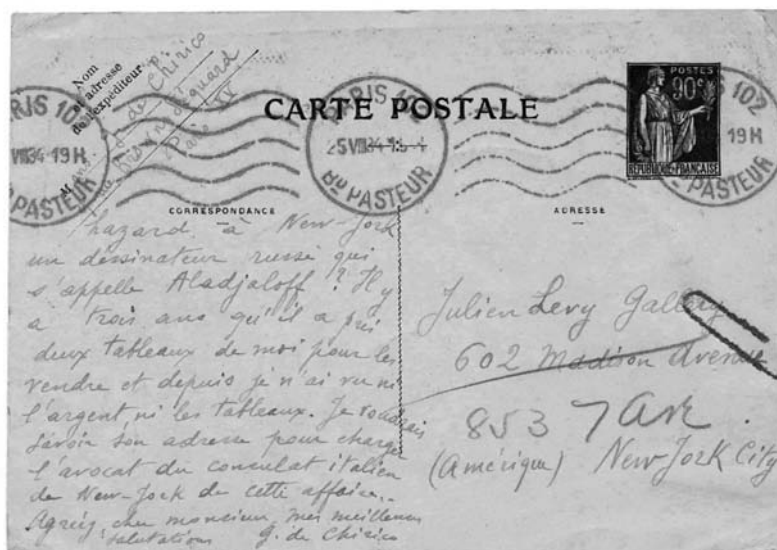 Nom
et adresse
de l'expéditeur
G. de Chirico
Paris
CARTE POSTALE
PARIS 102
VIII 34 19H
PASTEUR
PARIS 102
25 VIII 34
Bd PASTEUR
POSTES
90c
REPUBLIQUE FRANÇAISE
PARIS 102
19H
PASTEUR
CORRESPONDANCE
ADRESSE
hazard, à New-York
un dessinateur russe qui
s'appelle Aladjaloff? Il y
a trois ans qu'il a pris
deux tableaux de moi pour les
vendre et depuis je n'ai vu ni
l'argent, ni les tableaux. Je voudrais
savoir son adresse pour charger
l'avocat du consulat italien
de New-York de cette affaire..
Agréez, cher monsieur, mes meilleures
salutations G. de Chirico
Julien Levy Gallery
602 Madison Avenue
853 7 Ave.
(Amérique) New York City